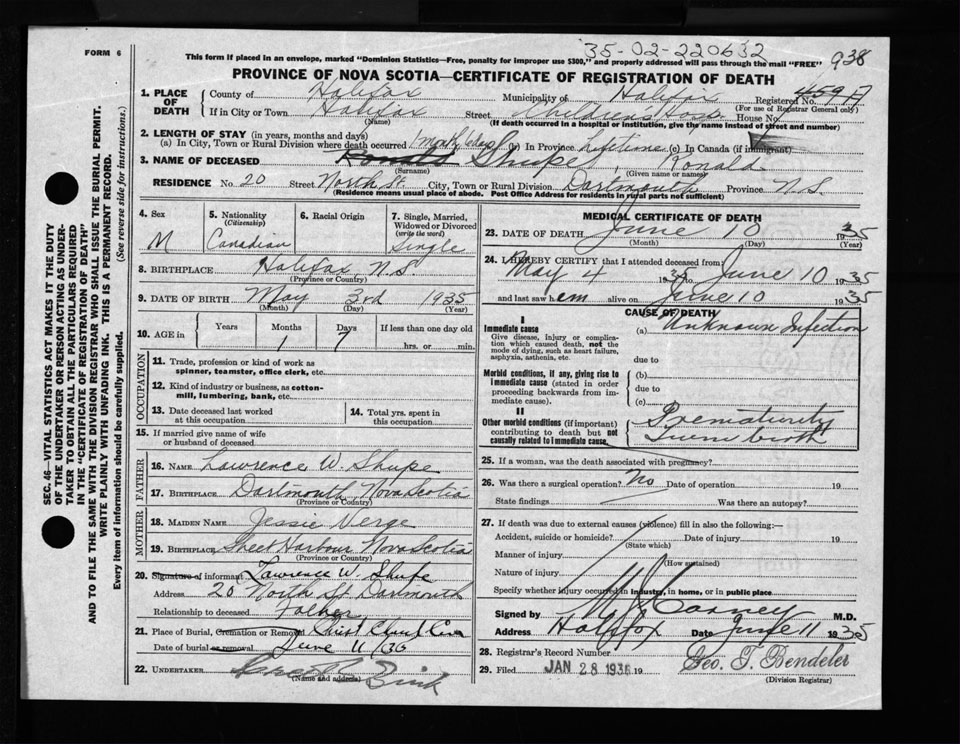 35-02-220632
938
FORM 6
This form if placed in an envelope, marked "Dominion Statistics—Free, penalty for improper use $300," and properly addressed will pass through the mail "FREE"
PROVINCE OF NOVA SCOTIA—CERTIFICATE OF REGISTRATION OF DEATH
1. PLACE OF DEATH
County of Halifax Municipality of Halifax Registered No. 459
(For use of Registrar General only)
If in City or Town Halifax Street Children's Hosp. House No.
(Name) (If death occurred in a hospital or institution, give the name instead of street and number)
2. LENGTH OF STAY (in years, months and days)
(a) In City, Town or Rural Division where death occurred 1 month 6 days (b) In Province lifetime (c) In Canada (if immigrant)
3. NAME OF DECEASED Ronald Shupe, Ronald
(Surname) (Given name or names)
RESIDENCE No. 20 Street North St. City, Town or Rural Division Dartmouth Province N.S.
(Residence means usual place of abode. Post Office Address for residents in rural parts not sufficient)
4. Sex
M
5. Nationality
(Citizenship)
Canadian
6. Racial Origin
7. Single, Married, Widowed or Divorced
(write the word)
Single
8. BIRTHPLACE Halifax, N.S
(Province or Country)
9. DATE OF BIRTH May 3rd 1935
(Month) (Day) (Year)
10. AGE in
Years Months Days If less than one day old
1 7 hrs. or min.
OCCUPATION
11. Trade, profession or kind of work as spinner, teamster, office clerk, etc.
12. Kind of industry or business, as cotton-mill, lumbering, bank, etc.
13. Date deceased last worked at this occupation
14. Total yrs. spent in this occupation
15. If married give name of wife or husband of deceased
FATHER
16. NAME Lawrence W. Shupe
17. BIRTHPLACE Dartmouth, Nova Scotia
(Province or Country)
MOTHER
18. MAIDEN NAME Jessie Verge
19. BIRTHPLACE Sheet Harbour Nova Scotia
(Province or Country)
20. Signature of informant Lawrence W. Shupe
Address 20 North St Dartmouth
Relationship to deceased Father
21. Place of Burial, Cremation or Removal Christ Church Cem
Date of burial or removal June 11/36
22. UNDERTAKER
(Name and address)
MEDICAL CERTIFICATE OF DEATH
23. DATE OF DEATH June 10 1935
(Month) (Day) (Year)
24. I HEREBY CERTIFY that I attended deceased from:
May 4 1935 to June 10 1935
and last saw h em alive on June 10 1935
CAUSE OF DEATH
I
Immediate cause
Give disease, injury or complication which caused death, not the mode of dying, such as heart failure, asphyxia, asthenia, etc.
(a) Unknown Infection
due to
Morbid conditions, if any, giving rise to immediate cause (stated in order proceeding backwards from immediate cause).
(b)
due to
(c)
II
Other morbid conditions (if important) contributing to death but not causally related to immediate cause.
Prematurity
Twin birth
25. If a woman, was the death associated with pregnancy?
26. Was there a surgical operation? No Date of operation 19
State findings Was there an autopsy?
27. If death was due to external causes (violence) fill in also the following:—
Accident, suicide or homicide? Date of injury 19
(State which)
Manner of injury
(How sustained)
Nature of injury
Specify whether injury occurred in industry, in home, or in public place
Signed by M.D.
Address Halifax Date June 11 1935
28. Registrar's Record Number
29. Filed JAN 28 1936 19 Geo. T. Bendeler
(Division Registrar)
SEC. 46—VITAL STATISTICS ACT MAKES IT THE DUTY
OF THE UNDERTAKER OR PERSON ACTING AS UNDER-
TAKER TO OBTAIN ALL THE PARTICULARS REQUIRED
IN THE "CERTIFICATE OF REGISTRATION OF DEATH"
AND TO FILE THE SAME WITH THE DIVISION REGISTRAR WHO SHALL ISSUE THE BURIAL PERMIT.
WRITE PLAINLY WITH UNFADING INK. THIS IS A PERMANENT RECORD.
Every item of information should be carefully supplied. (See reverse side for instructions.)